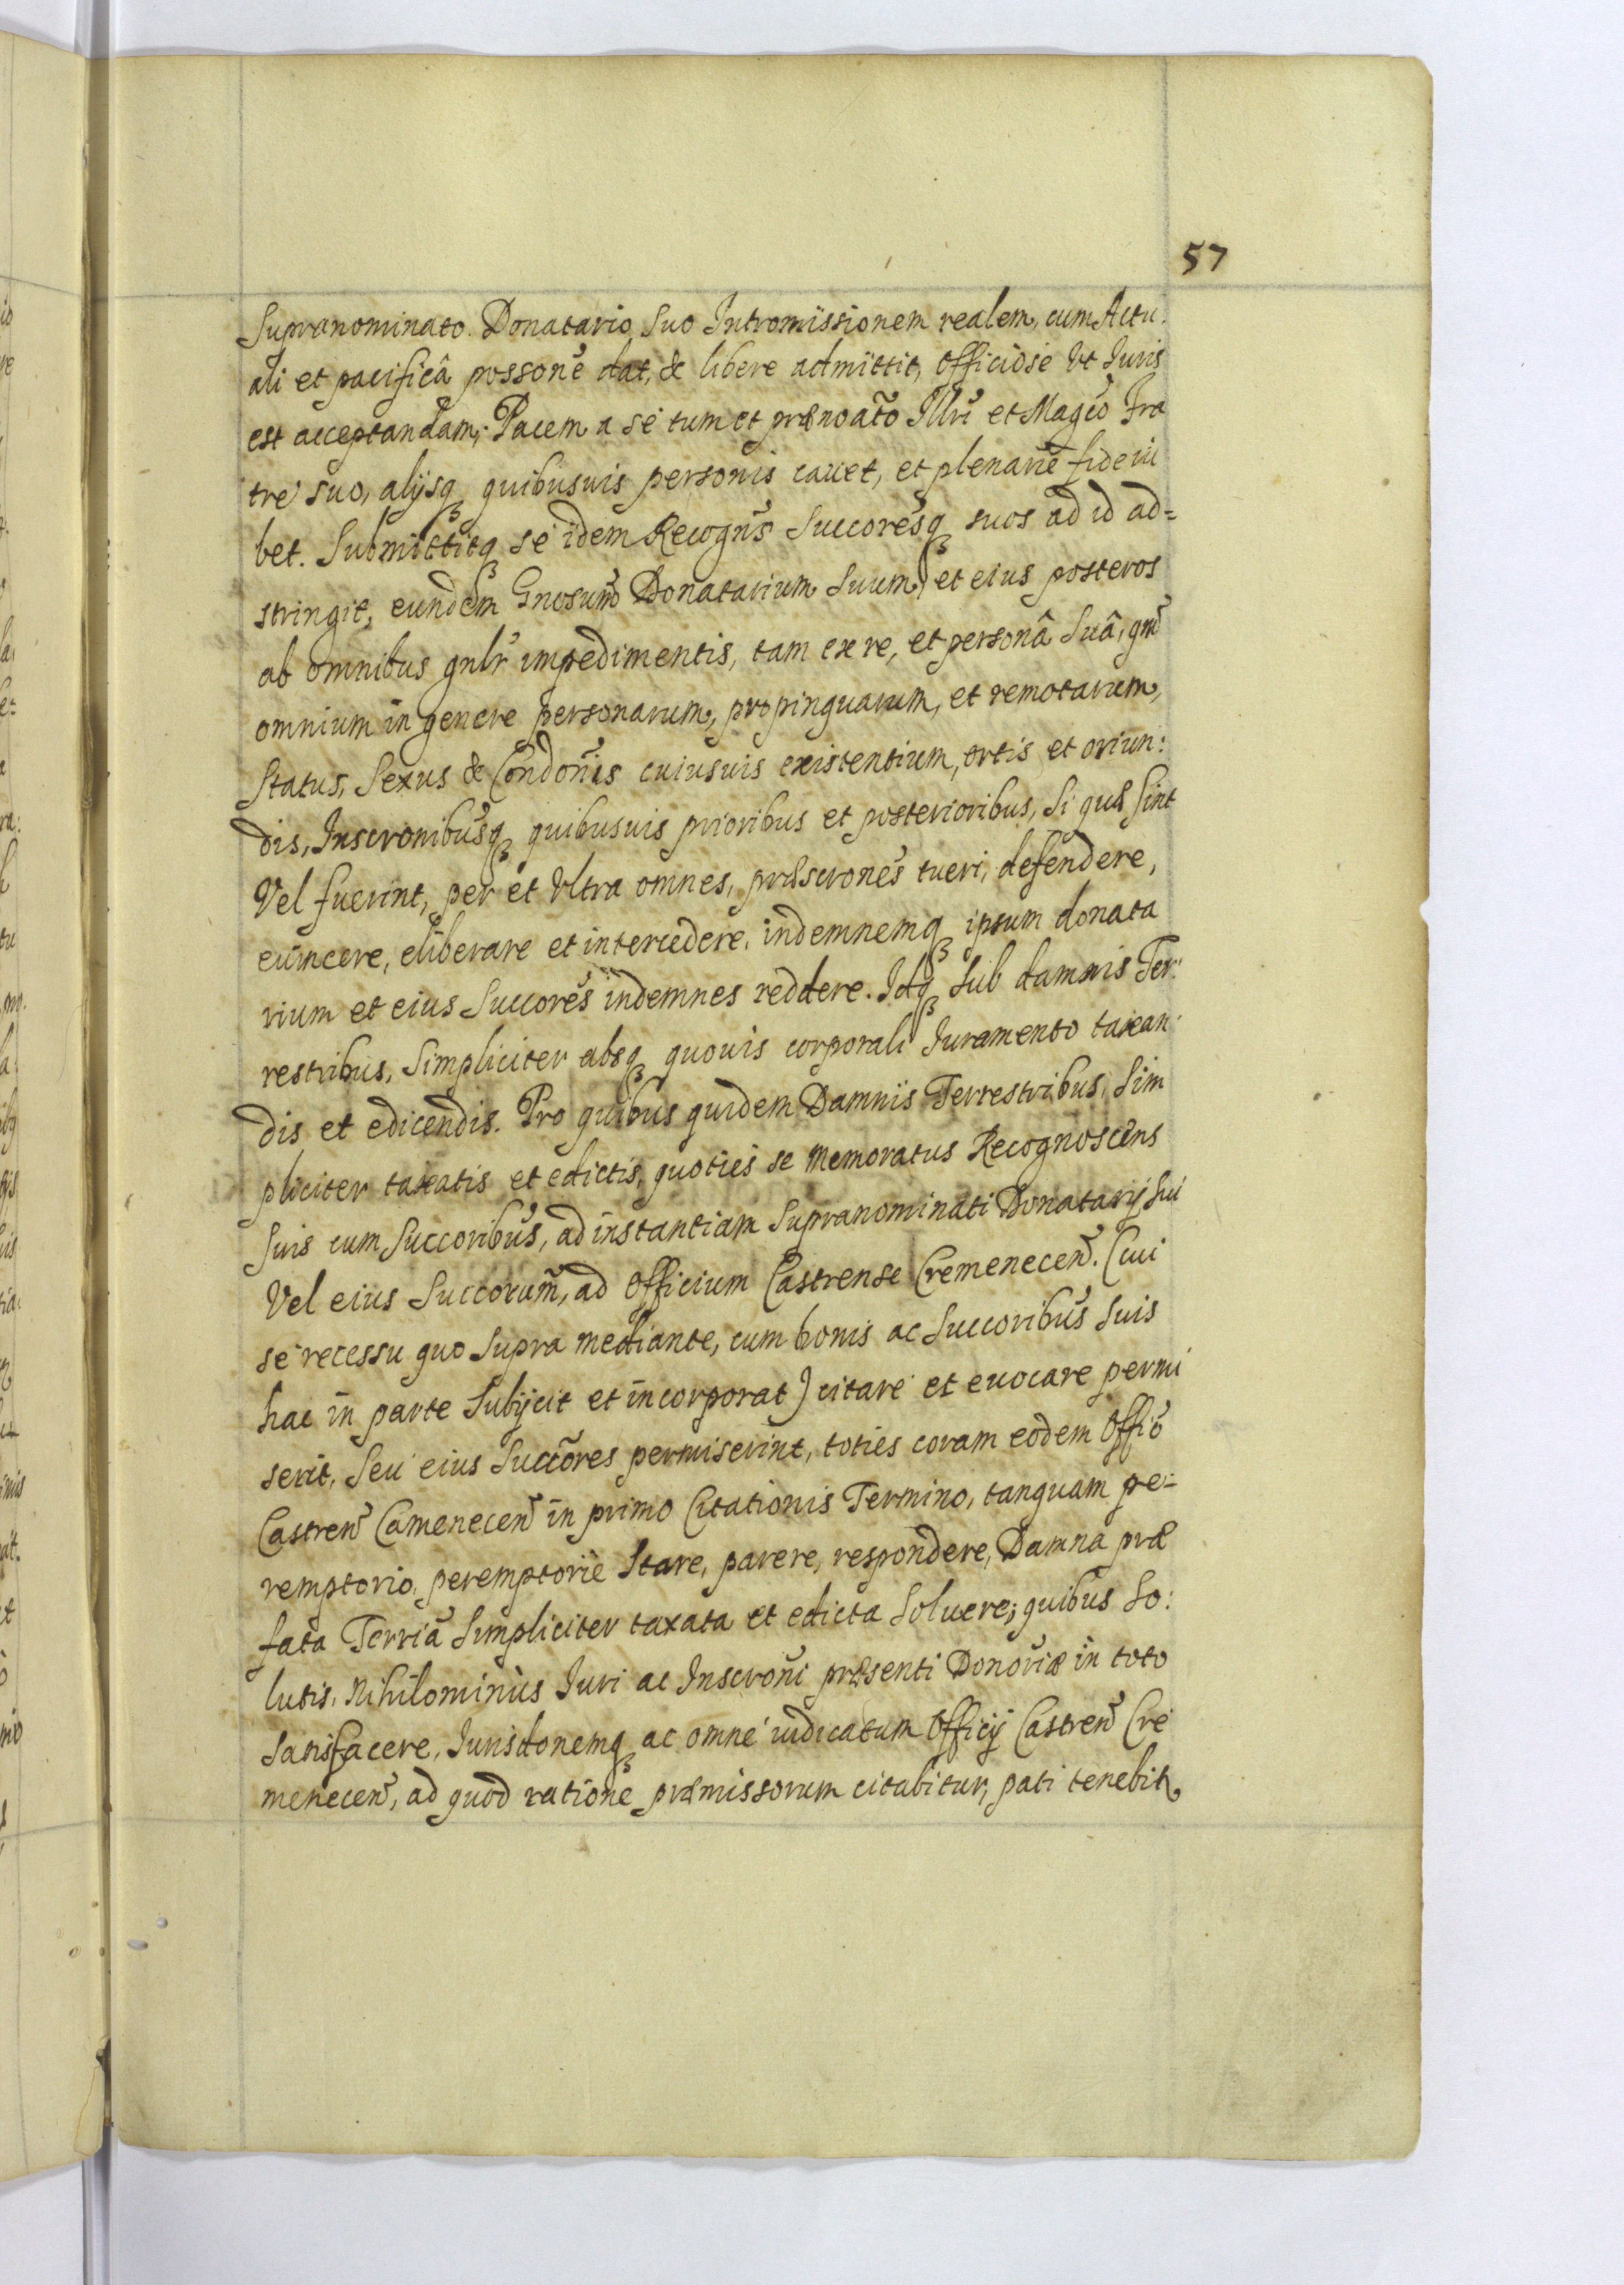 57
Supranominato Donatario Suo Intromissionem realem, cum Actu:
ali et pacificâ possone dat, & libere admittit, officiose Vt Iuris
est acceptandam; Pacem a se tum et prænoãto Illrĩ et Magcõ Fra
tre suo, alijsq₃ quibusuis personis cauet, et plenarie fide iu
bet. Submittitq₃ se idem Recogns̃ Succoresq₃ suos ad id ad=
stringit, eundem Gnosum̃ Donatarium Suum, et eius posteros
ab omnibus gnlr̃ impedimentis, tam ex re, et personâ Suâ, qm̃
omnium in genere personarum, propinquarum, et remotarum,
Status, Sexus & Condonis̃ cuiusuis existentium, ortis et oriun:
dis, Inscronibusq₃ quibusuis prioribus et posterioribus, Si quæ Sint
Vel fuerint, per et Vltra omnes, præscrones tueri, defendere,
euincere, eliberare et intercedere, indemnemq₃ ipsum donata
rium et eius Succores indemnes reddere. Idq₃ Sub damnis Ter:
restribus, Simpliciter absq₃ quouis corporali Iuramento taxan:
dis et edicendis. Pro quibus quidem Damnis Terrestribus, Sim
pliciter taxatis et edictis, quoties se Memoratus Recognoscens
Suis cum Succoribus, ad instantiam Supranominati Donatarij Sui
Vel eius Succorum̃, ad Officium Castrense Cremenecen̄. (Cui
se recessu quo Supra mediante, cum bonis ac Succoribus Suis
hac in parte Subijcit et incorporat) citare et euocare permi
serit, Seu eius Succõres permiserint, toties coram eodem Offiõ
Castren̄ Camenecen̄ in primo Citationis Termino, tanquam pe=
remptorio, peremptorie Stare, parere, respondere, Damna præ
fata Terriã Simpliciter taxata et edicta Soluere; quibus So:
lutis, Nihilominus Iuri ac Inscroñi præsenti Donoriæ in toto
Satisfacere, Iurisdonemq₃ ac omne iudicatum Officij Castren̄ Cre
menecen̄, ad quod ratione præmissorum citabitur, pati tenebit̃